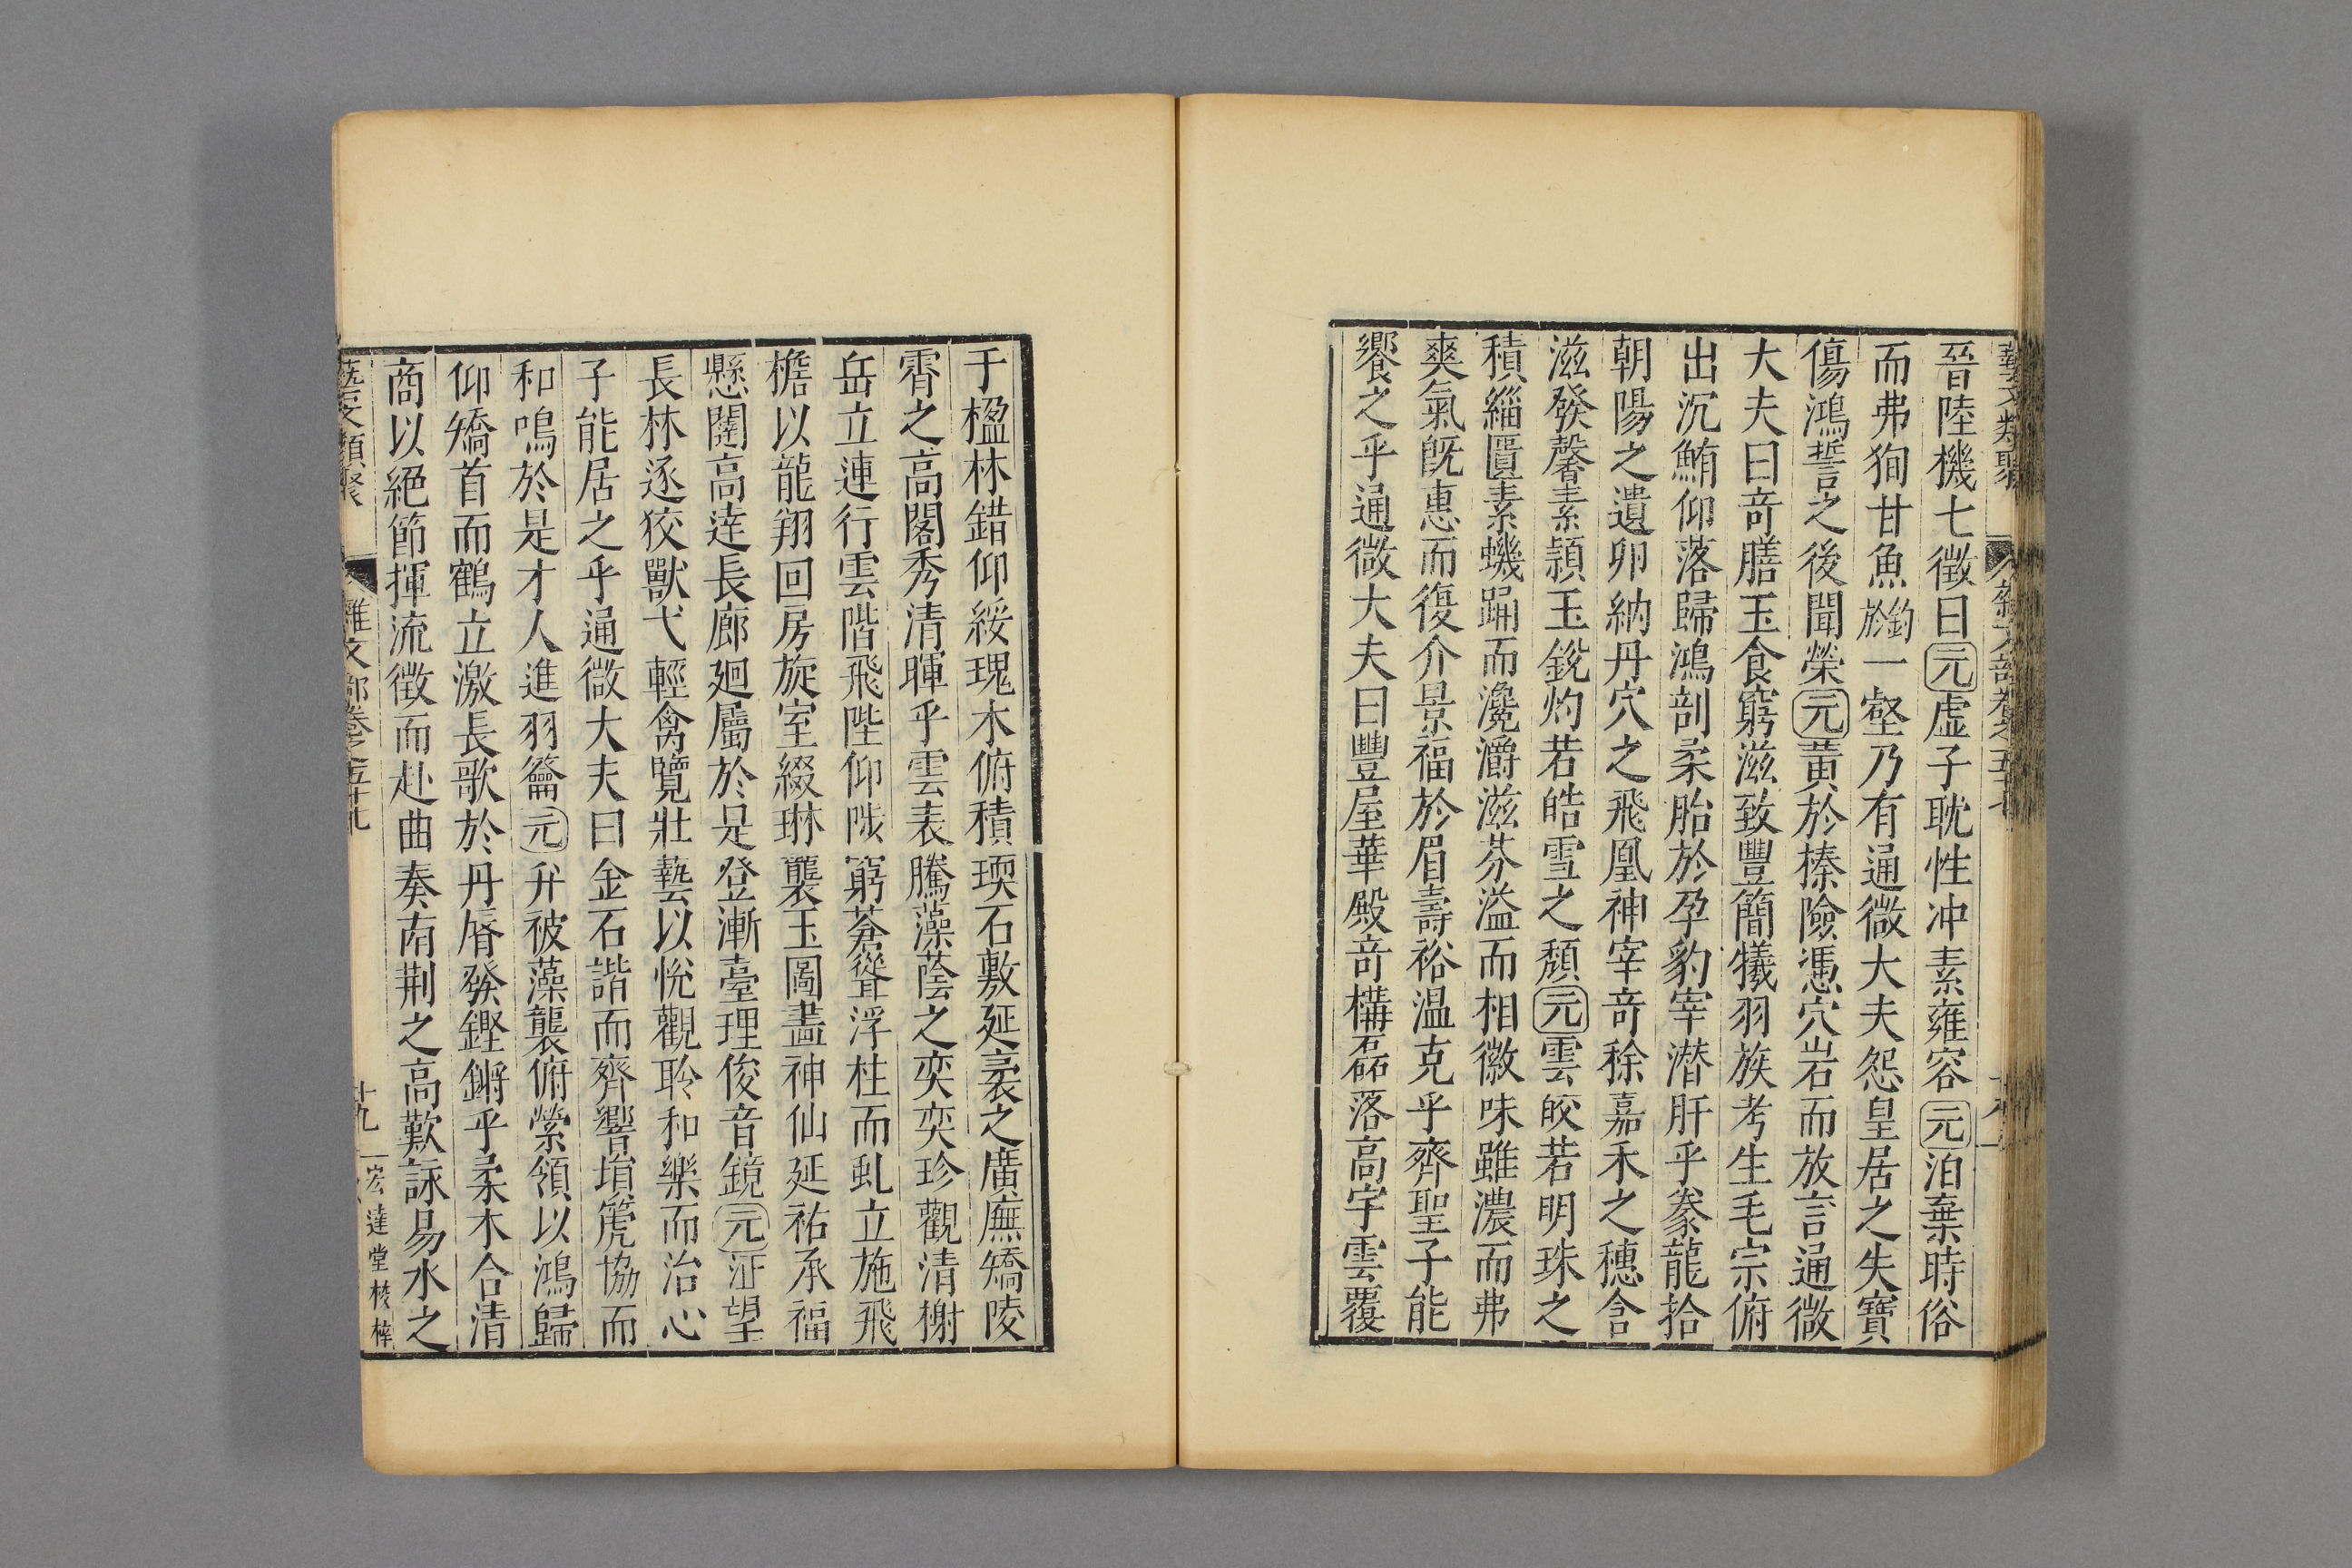 晉陸機七徵曰元虛子耽性冲素雍容元泊棄時俗
而弗狥甘魚釣於一壑乃有通微大夫怨皇居之失寶
傷鴻誓之後聞榮元黃於榛險憑穴岩而放言通微
大夫曰竒膳玉食窮滋致豐簡犧羽族考生毛宗俯
出沉鮪仰落歸鴻剖柔胎於孕豹宰潜肝乎豢龍拾
朝陽之遺卵納丹穴之飛凰神宰竒稌嘉禾之穗含
滋發馨素頴玉銳灼若皓雪之頹元雲皎若明珠之
積緇匱素蟣踊而瀺灂滋芬溢而相徽味雖濃而弗
爽氣旣惠而復介景福於眉壽裕温克乎齊聖子能
饗之乎通微大夫曰豐屋華殿竒構磊落高宇雲覆
于楹林錯仰綏瑰木俯積瑌石敷延袤之廣廡矯陵
霄之高閣秀清暉乎雲表騰藻蔭之奕奕珍觀清榭
岳立連行雲階飛陛仰陟窮蒼聳浮柱而虬立施飛
檐以龍翔回房旋室綴琳襲玉圖畵神仙延祐承福
懸闥高達長廊廻屬於是登漸臺理俊音鏡元沚望
長林逐狡獸弋輕禽覽壯藝以悅觀聆和樂而治心
子能居之乎通微大夫曰金石諧而齊響塤篪協而
和鳴於是才人進羽籥元弁被藻襲俯縈領以鴻歸
仰矯首而鶴立激長歌於丹脣發鏗鏘乎柔木合清
商以絕節揮流徵而赴曲奏南荆之高歎詠易水之
藝文類聚 雜文部卷之五十七 十九 宏達堂校梓